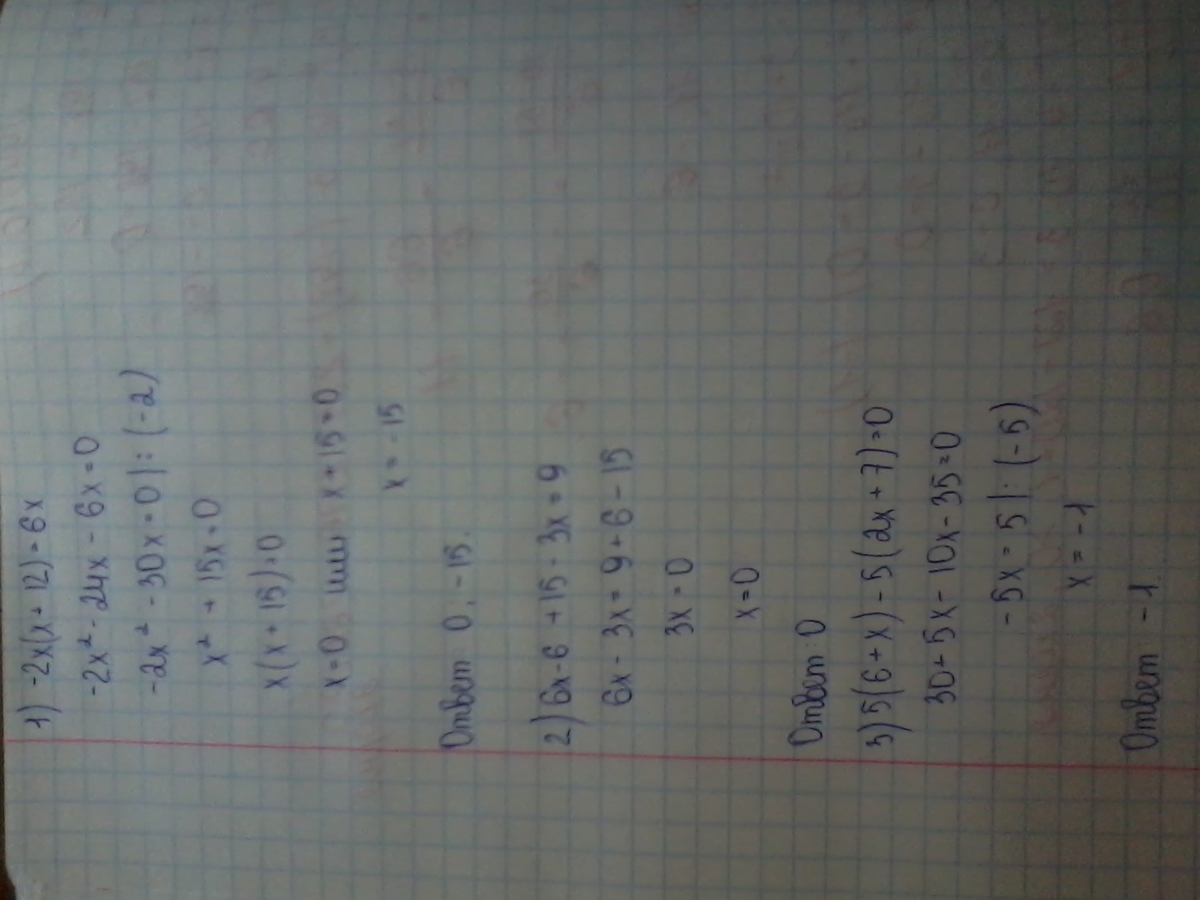 1) -2x(x+12)=6x
-2x² - 24x - 6x=0
-2x² - 30x = 0 |: (-2)
x² + 15x=0
x(x+15)=0
x=0 или x+15=0
x=-15
Ответ: 0, -15.
2) 6x-6+15-3x=9
6x-3x=9+6-15
3x=0
x=0
Ответ: 0
3) 5(6+x)-5(2x+7)=0
30+5x-10x-35=0
-5x=5 |: (-5)
x=-1
Ответ -1